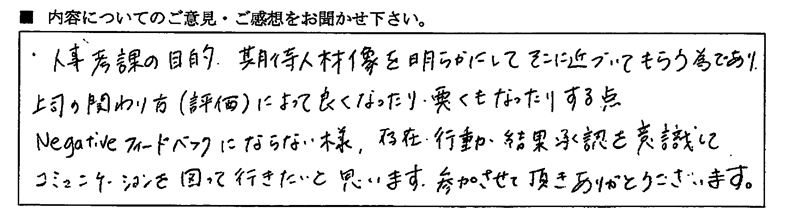 ■ 内容についてのご意見・ご感想をお聞かせ下さい。
・人事考課の目的、期待人材像を明らかにしてそこに近づいてもらう為であり、
上司の関わり方(評価)によって良くなったり、悪くもなったりする点
Negativeフィードバックにならない様、存在・行動・結果承認を意識して
コミュニケーションを図って行きたいと思います。参加させて頂きありがとうございます。